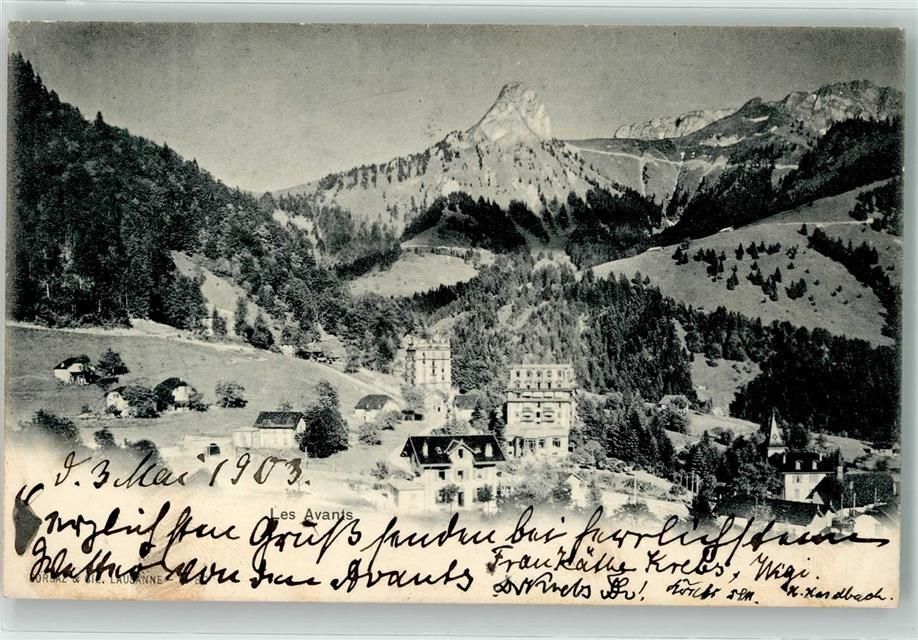 d. 3 Mai 1903.
Les Avants
Herzlichsten Gruß senden bei herrlichstem
Wetter von den Avants Frau Käthe Krebs, Wigi.
CORBAZ & CIE. LAUSANNE
Dr Krebs